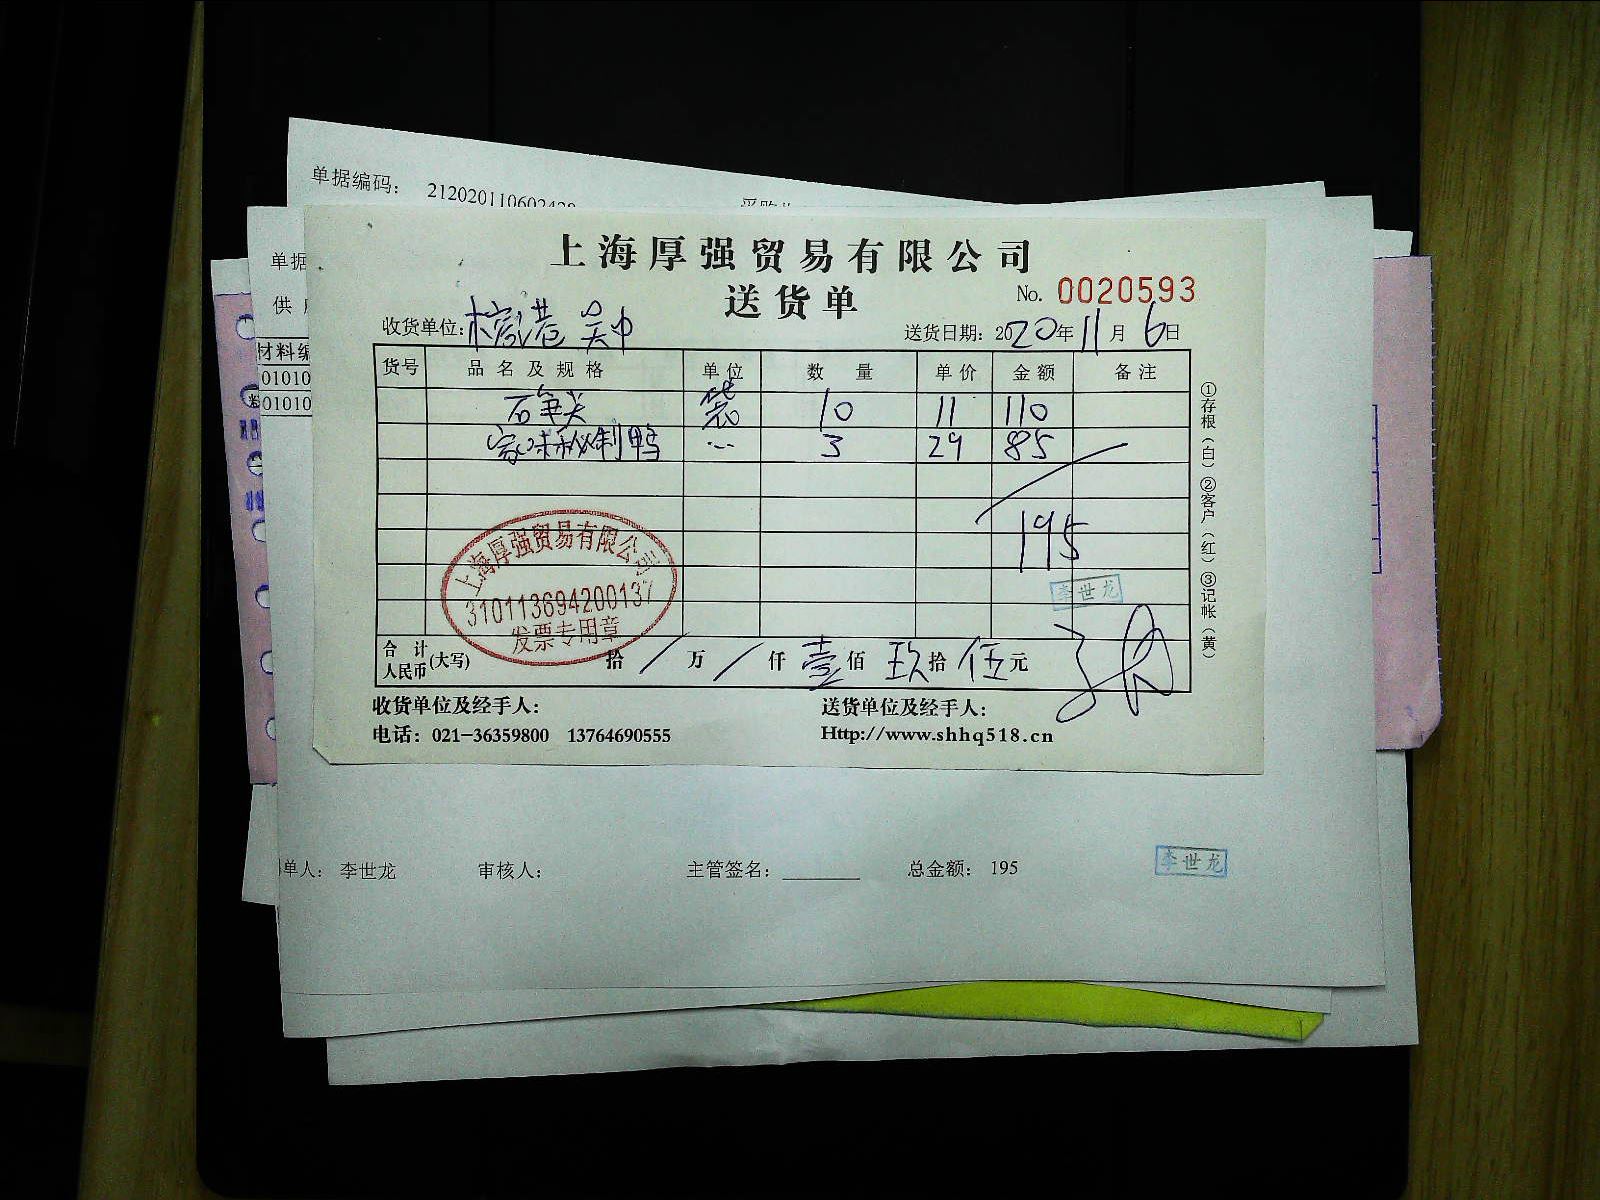 单据编码： 212020110602428
单据
供
材料编
01010
01010
上海厚强贸易有限公司
送货单
No. 0020593
收货单位: 吴中
送货日期: 2020年11月6日
货号 品名及规格 单位 数量 单价 金额 备注
石笋尖 袋 10 11 110
家味秘制鸭 3 29 85
195
上海厚强贸易有限公司
310113694200137
发票专用章
李世龙
合计人民币(大写) 拾 / 万 / 仟 壹 佰 玖 拾 伍 元
①存根（白）②客户（红）③记帐（黄）
收货单位及经手人: 送货单位及经手人:
电话: 021-36359800 13764690555 Http://www.shhq518.cn
单人: 李世龙 审核人: 主管签名: 总金额: 195
李世龙